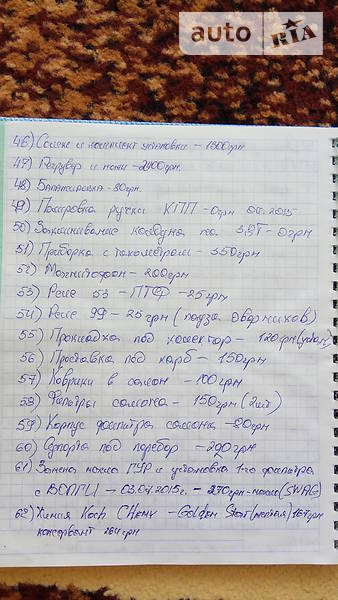 auto RIA
46) Сомекс и комплект установки - 1800грн.
47) Петрувер и ножи - 2400грн.
48) Балансировка - 80грн.
49) Полировка ручки КПП - 0грн 04.2015
50) Заканчивание колдуна на 3,9Т - 0грн
51) Приборка с тахометром - 350грн
52) Магнитофон - 200грн
53) Реле 53 - ПТФ - 25грн
54) Реле 99 - 25грн (пауза дворников)
55) Прокладка под колектор - 120грн
56) Проставка под карб - 150грн
57) Коврики в салон - 100грн
58) Фильтры салона - 150грн (2шт)
59) Корпус фильтра салона - 80грн
60) под перебор - 290грн
61) Замена масла ГУР и установка 1-го фильтра
с ВОПГЦ - 03.07.2015г. - 270грн - масло (SWAG)
62) Химия Koch Chemy - Golden Star 167грн
консервант 264грн